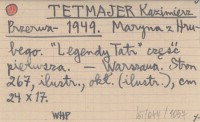 TETMAJER Kazimierz
Przerwa- 1949. Maryna z Hru-
bego. "Legendy Tatr" część
pierwsza. — Warszawa. Stron
267, ilustr., okł. (ilustr.), cm
24 x 17.
WHP